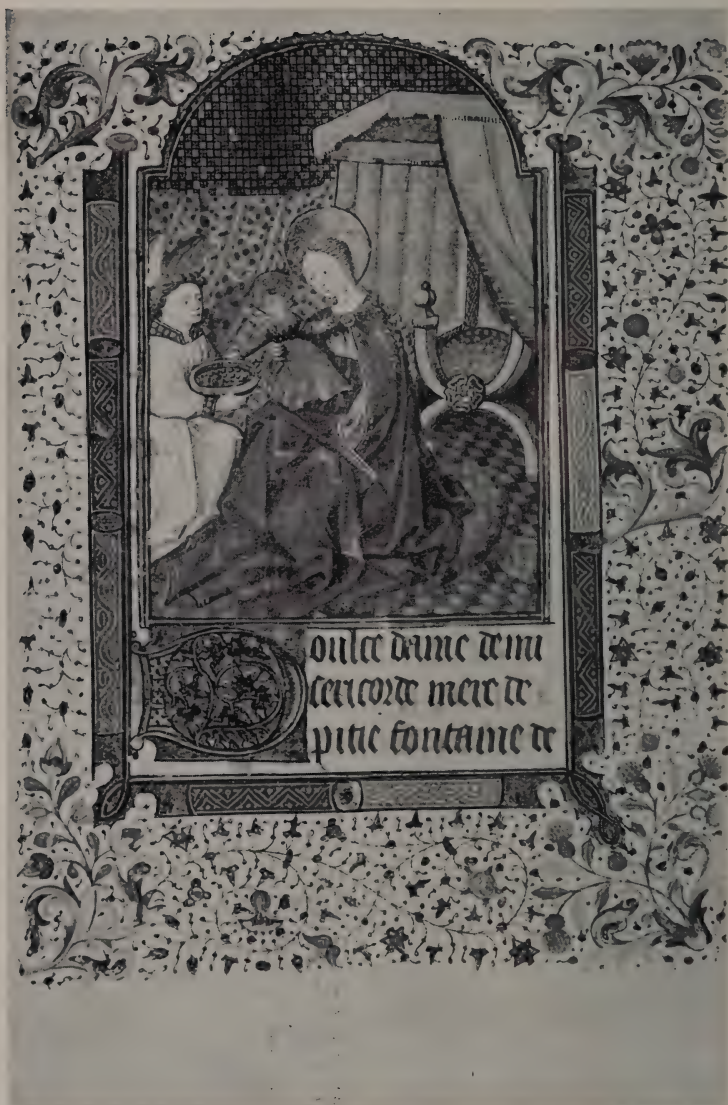 Doulce dame de mi
sericorde mere de
pitie fontaine de